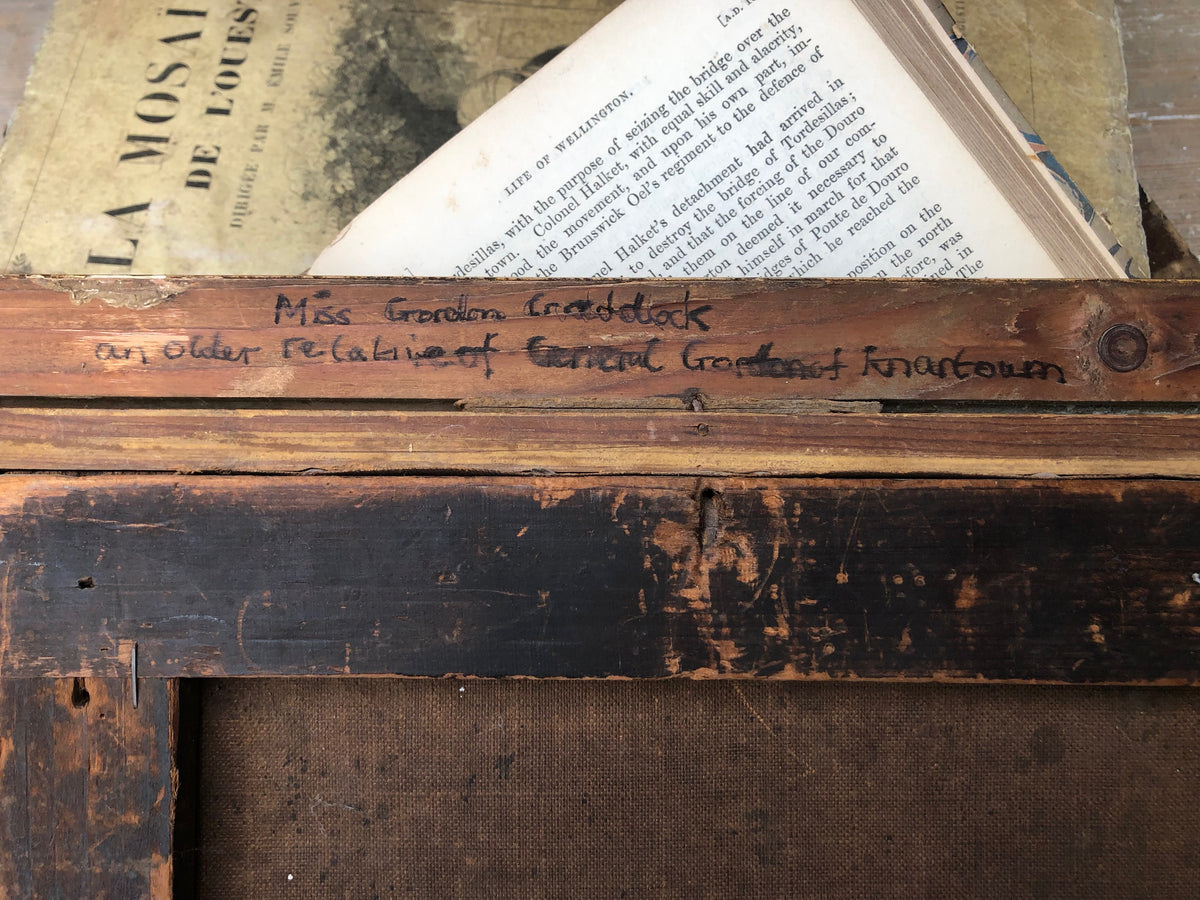 LA MOSAÏ
DE L'OUES
DIRIGÉE PAR M. ÉMILE SOUV
[A.D.
LIFE OF WELLINGTON.
desillas, with the purpose of seizing the bridge over the
town. Colonel Halket, with equal skill and alacrity,
the movement, and upon his own part, im-
the Brunswick Oel's regiment to the defence of
Halket's detachment had arrived in
to destroy the bridge of Tordesillas;
and that the forcing of the Douro
them on the line of our com-
deemed it necessary to
himself in march for that
of Ponte de Douro
which he reached the
position on the
the north
was
in
The
Miss Gordon Craddock
an older relative of General Gordon of Khartoum